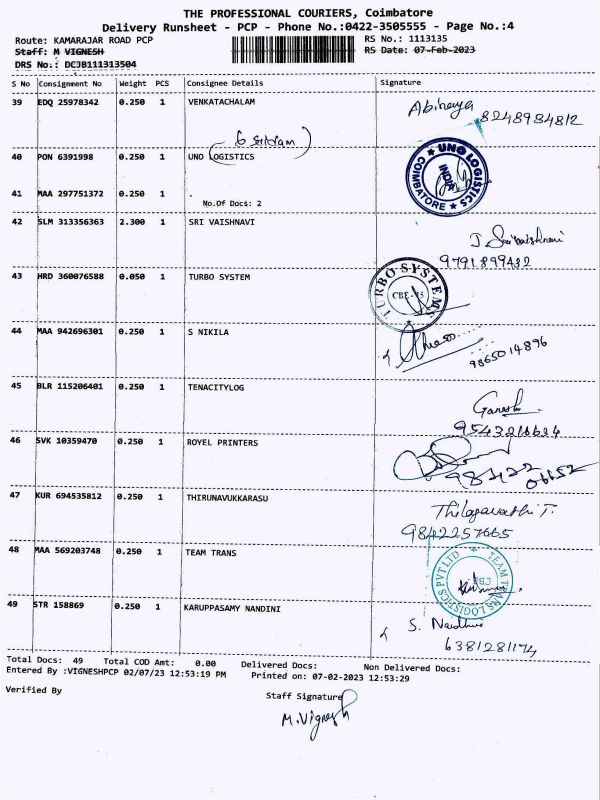 THE PROFESSIONAL COURIERS, Coimbatore
Delivery Runsheet - PCP - Phone No.:0422-3505555 - Page No.:4
Route: KAMARAJAR ROAD PCP
RS No.: 1113135
Staff: M VIGNESH
RS Date: 07-Feb-2023
DRS No.: DCJB111313504
S No Consignment No Weight PCS Consignee Details Signature
39 EDQ 25978342 0.250 1 VENKATACHALAM
Abinaya
8248984812
40 PON 6391998 0.250 1 UNO LOGISTICS
UNO LOGISTICS COIMBATORE INDIA
41 MAA 297751372 0.250 1 .
No.Of Docs: 2
42 SLM 313356363 2.300 1 SRI VAISHNAVI
9791899432
43 HRD 360076588 0.050 1 TURBO SYSTEM
TURBO SYSTEMS
44 MAA 942696301 0.250 1 S NIKILA
9865014896
45 BLR 115206401 0.250 1 TENACITYLOG
Ganesh
46 SVK 10359470 0.250 1 ROYEL PRINTERS
47 KUR 694535812 0.250 1 THIRUNAVUKKARASU
Thilagavathi T.
9842257665
48 MAA 569203748 0.250 1 TEAM TRANS
TEAM TRANS LOGISTICS PVT LTD
CBE
49 STR 158869 0.250 1 KARUPPASAMY NANDINI
6381281174
Total Docs: 49 Total COD Amt: 0.00 Delivered Docs: Non Delivered Docs:
Entered By :VIGNESHPCP 02/07/23 12:53:19 PM Printed on: 07-02-2023 12:53:29
Verified By
Staff Signature
M.Vignesh